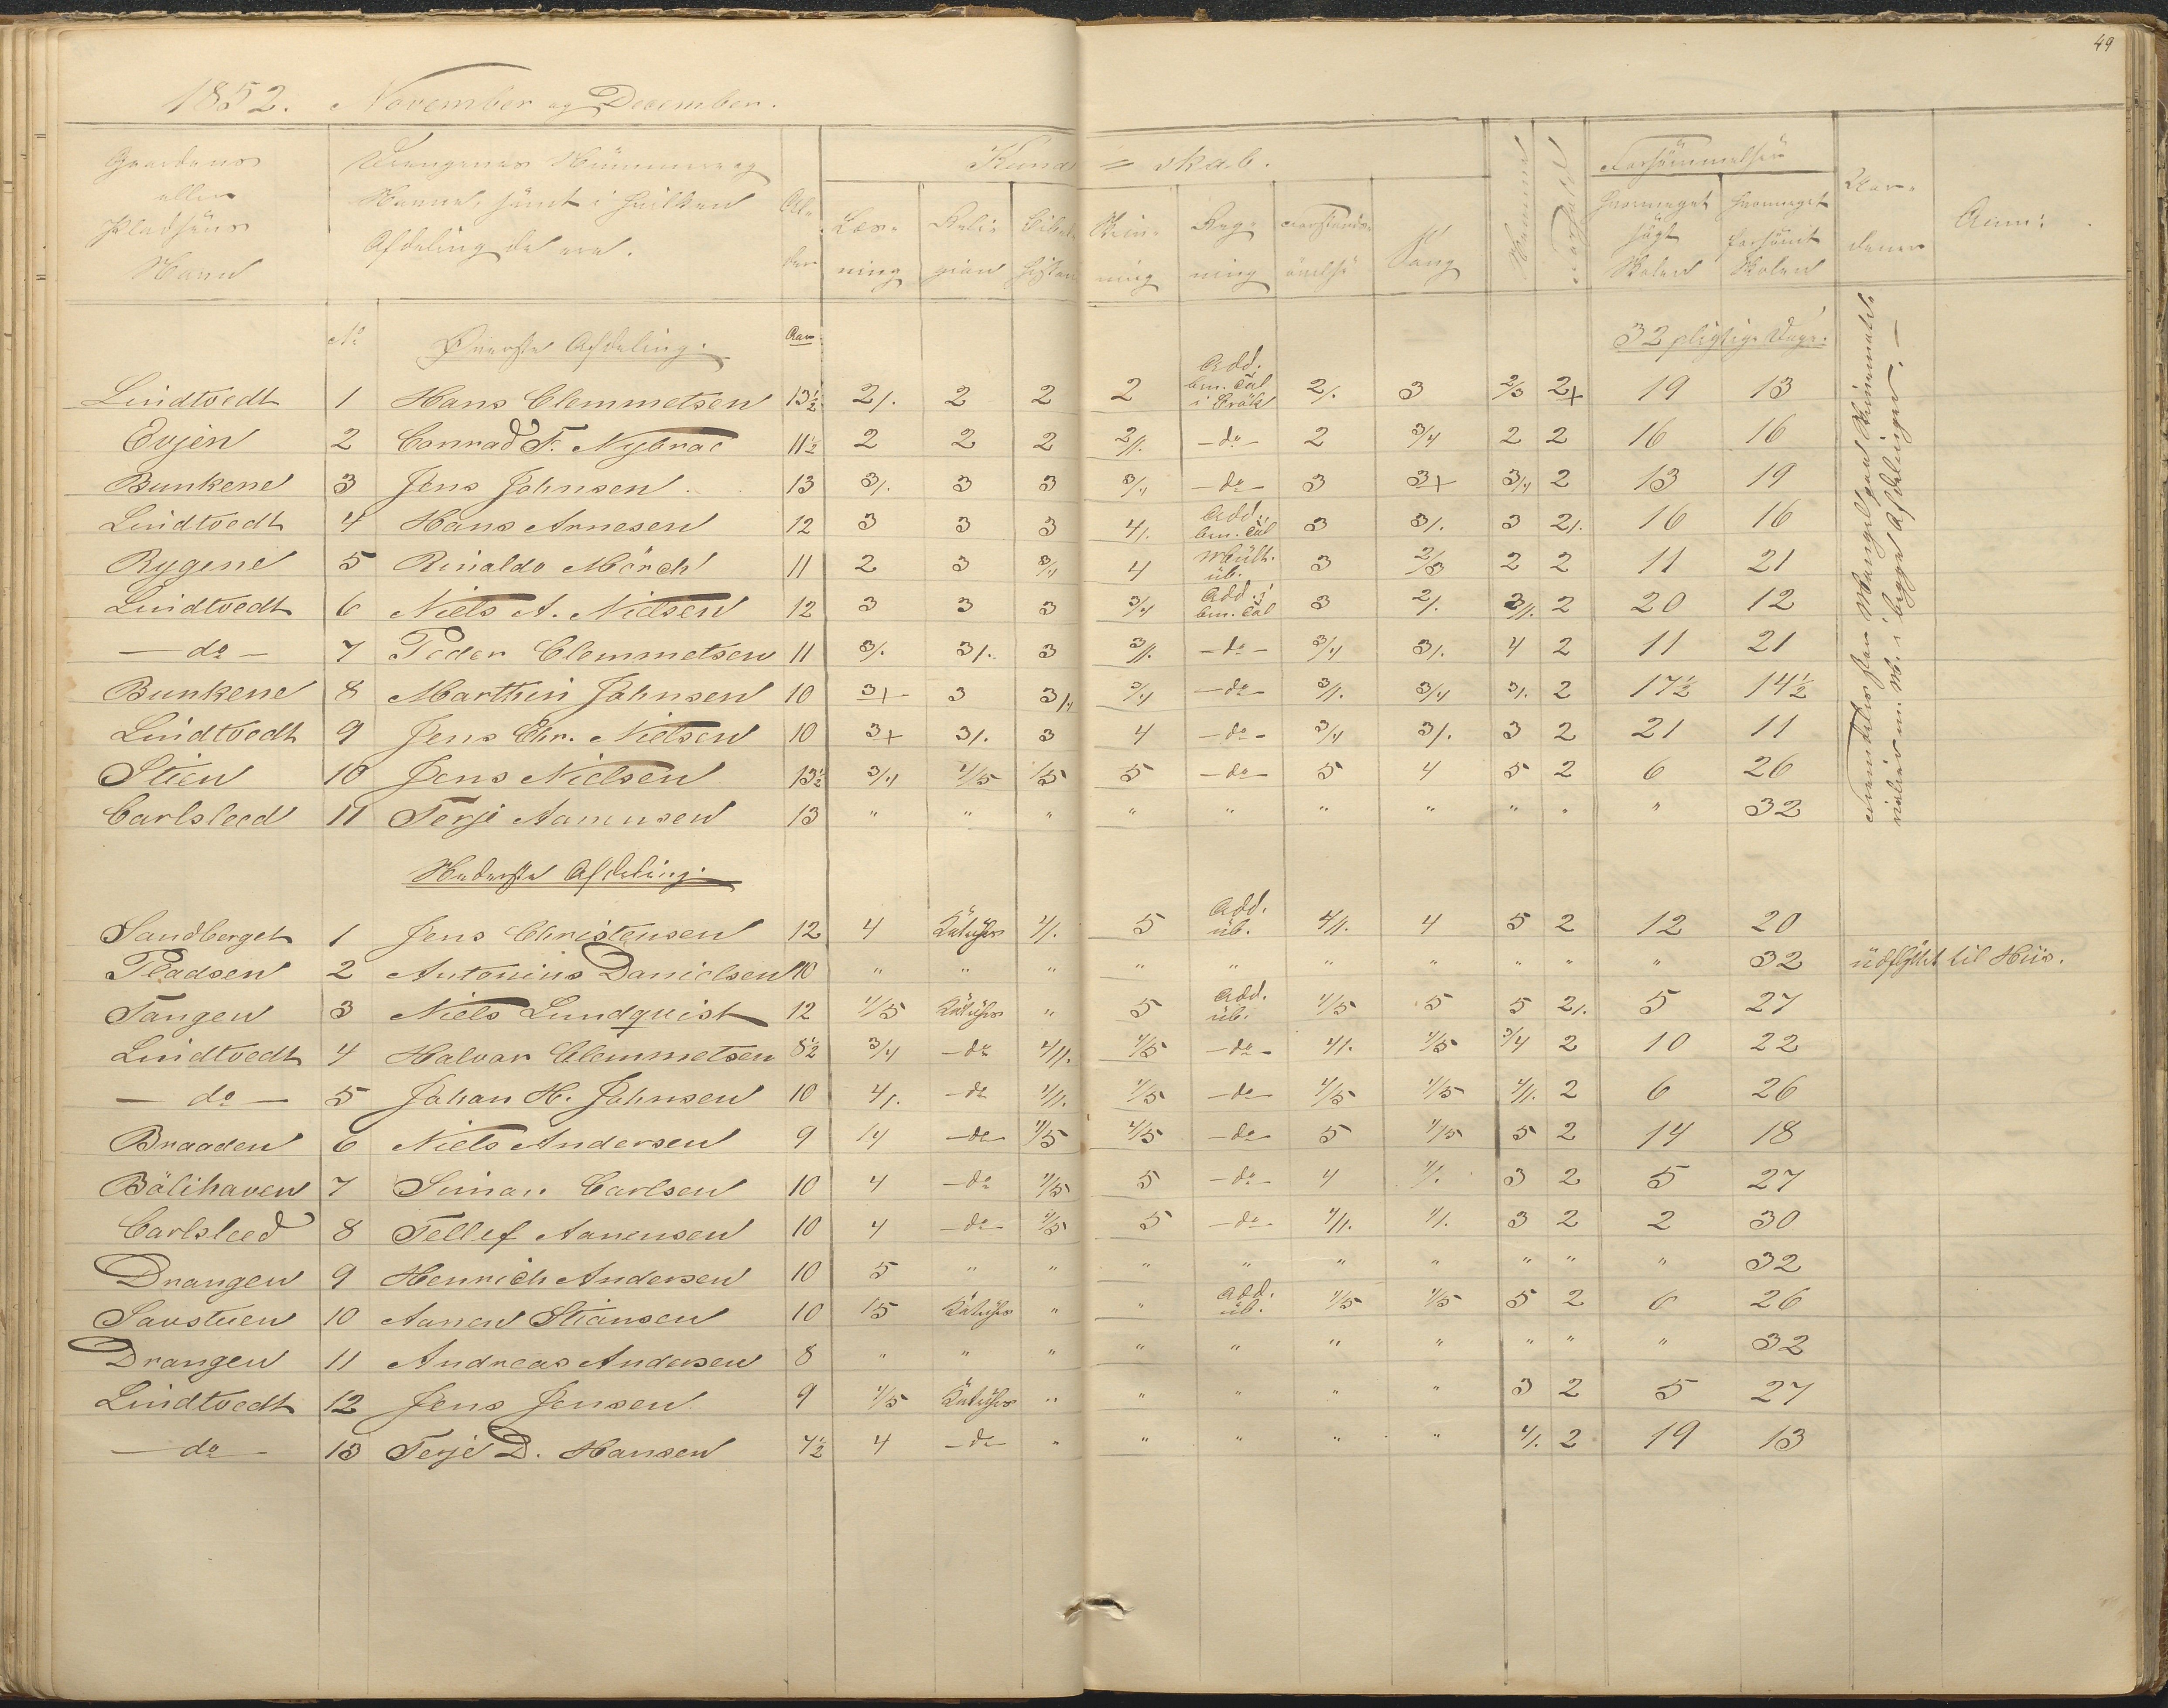 49
1852. November og December.
Gaardens eller Pladsens Navn
Drengenes Nummer og Navne, samt i hvilken Afdeling de ere.
Alder
Kund = skab.
Læsning
Religion
Bibelhistorie
Skrivning
Regning
Forstandsövelse
Sang
Nemme
Forhold
Forsømmelser
hvormeget søgt Skolen
hvormeget forsømt Skolen
Anm:
No Øverste Afdeling. Aar 32 pligtige Dage.
Lindtvedt 1 Hans Clemmetsen 13½ 2/. 2 2 2 Add. ben. Tal i Brök 2/. 3 2/3 2+ 19 13
Evjen 2 Conrad F. Nybrac 11½ 2 2 2 2//. -do- 2 3/4 2 2 16 16
Bunkene 3 Jens Johnsen 13 3/. 3 3 3/4 -do- 3 3+ 3/4 2 13 19
Lindtvedt 4 Hans Arnesen 12 3 3 3 4/. Add. i ben. Tal 3 3/. 3 2/. 16 16
Rygene 5 Rinaldo Mörch 11 2 3 3/4 4 Mült. üb. 3 2/3 2 2 11 21
Lindtvedt 6 Niels A. Nielsen 12 3 3 3 3/4 Add. i ben. Tal 3 2/. 3//. 2 20 12
-do- 7 Peder Clemmetsen 11 3/. 3/. 3 3//. -do- 3/4 3/. 4 2 11 21
Bunkene 8 Marthin Johnsen 10 3+ 3 3/4 3/4 -do- 3//. 3/4 3/. 2 17½ 14½
Lindtvedt 9 Jens Chr. Nielsen 10 3+ 3/. 3 4 -do- 3/4 3/. 3 2 21 11
Stien 10 Jens Nielsen 13½ 3/4 4/5 /5 5 -do- 5 4 5 2 6 26
Carlsleed 11 Terje Aamunsen 13 " " " " " " " " " " 32
Nederste Afdeling.
Sandberget 1 Jens Christensen 12 4 Katichs 4/. 5 Add. üb. 4//. 4 5 2 12 20
Pladsen 2 Antonius Danielsen 10 " " " " " " " " " " 32 üdflyttet til Hiis.
Tangen 3 Niels Lundquist 12 4/5 Katichs " 5 Add. üb. 4/5 5 5 2/. 5 27
Lindtvedt 4 Halvor Clemmetsen 8½ 3/4 -do 4//. 4/5 -do- 4/. 4/5 3/4 2 10 22
-do- 5 Johan H. Johnsen 10 4/. -do 4//. 4/5 -do- 4/5 4/5 4//. 2 6 26
Braaden 6 Niels Andersen 9 /4 -do 4/5 4/5 -do- 5 4/5 5 2 14 18
Bölihaven 7 Simon Carlsen 10 4 -do 4/5 5 -do- 4 4/. 3 2 5 27
Carlsleed 8 Tellef Aanensen 10 4 -do 4/5 5 -do- 4//. 4/. 3 2 2 30
Drangen 9 Henrich Andersen 10 5 " " " " " " " " " 32
Savstuen 10 Aanen Stiansen 10 /5 Katichs " " Add. üb. 4/5 4/5 5 2 6 26
Drangen 11 Andreas Andersen 8 " " " " " " " " " " 32
Lindtvedt 12 Jens Jensen 9 4/5 Katichs " " " " " 3 2 5 27
-do- 13 Terje D. Hansen 7½ 4 -do " " " " " 4/. 2 19 13